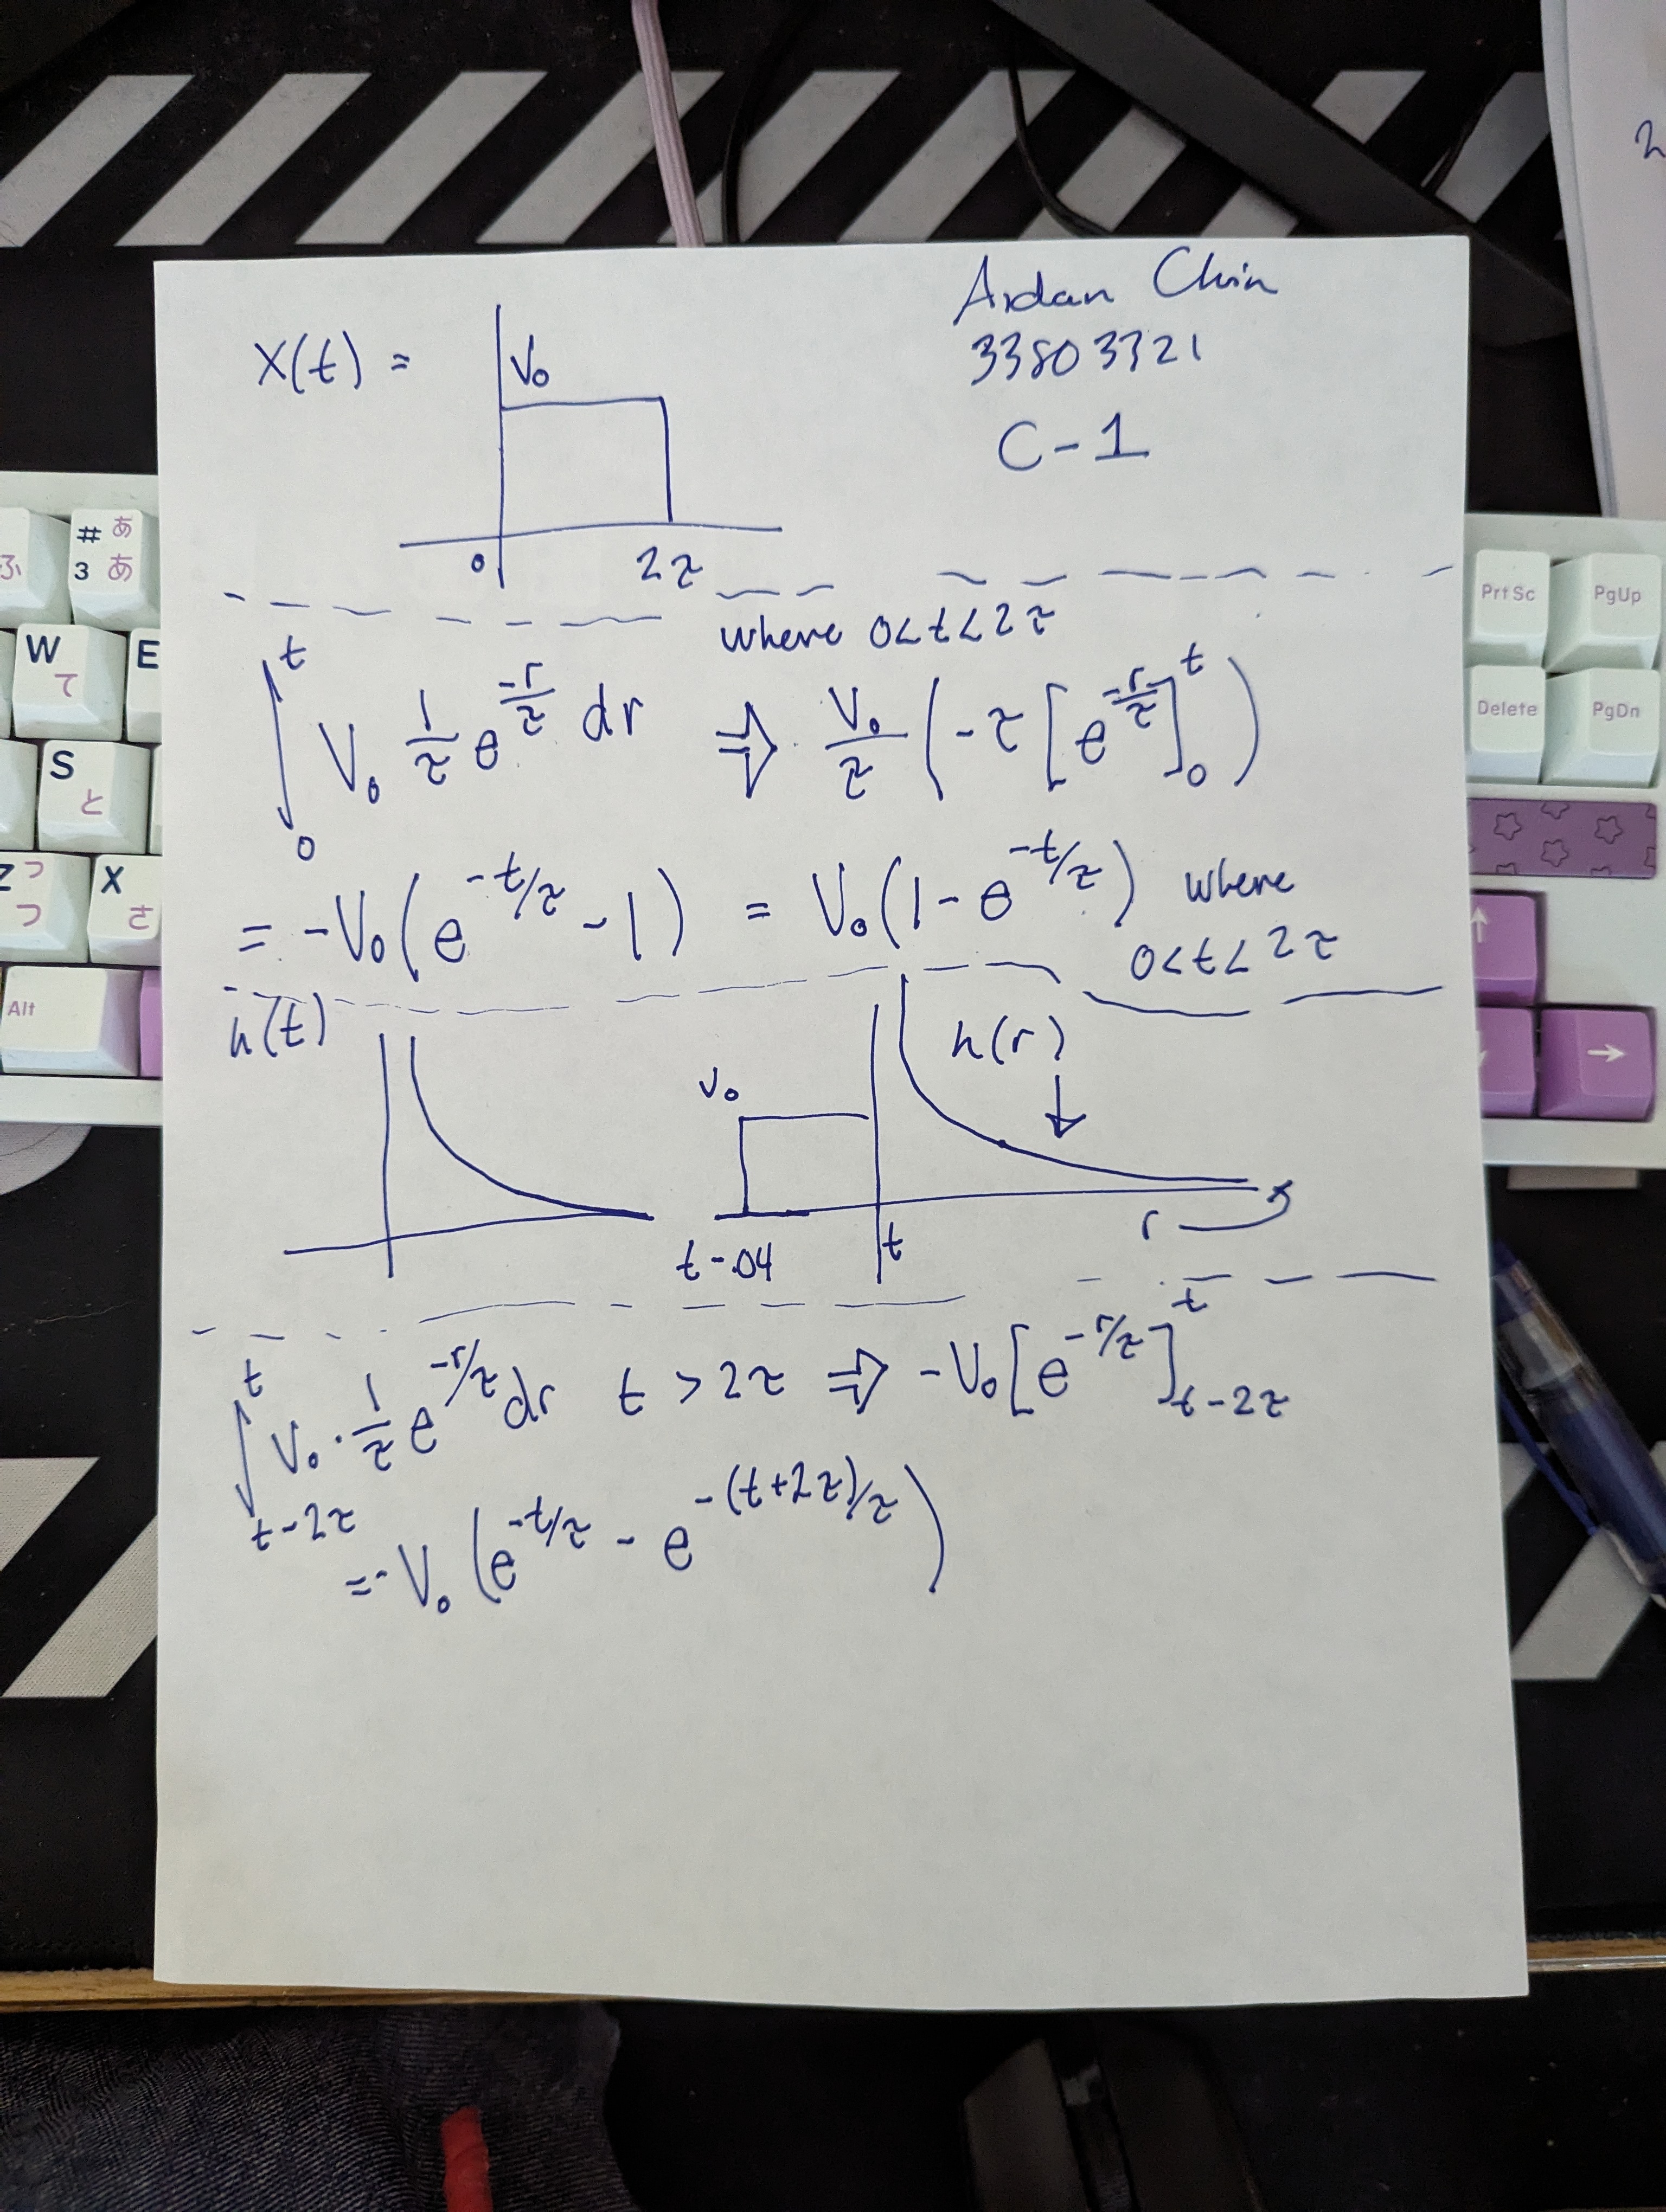 Aidan Chin
33803321
C-1
X(t) =
V₀
0 2τ
where 0<t<2τ
∫₀ᵗ V₀ 1/τ e^(-r/τ) dr ⇒ V₀/τ (-τ [e^(-r/τ)]₀ᵗ)
= -V₀(e^(-t/τ) - 1) = V₀(1 - e^(-t/τ)) where
0<t<2τ
h(t)
h(r)
V₀
t-.04 t r
∫_(t-2τ)^t V₀ · 1/τ e^(-r/τ) dr t > 2τ ⇒ -V₀[e^(-r/τ)]_(t-2τ)^t
=-V₀(e^(-t/τ) - e^(-(t+2τ)/τ))
# あ
3 あ
ふ
W E
て
S
と
Z つ X
っ さ
Alt
PrtSc PgUp
Delete PgDn
↑
→
2